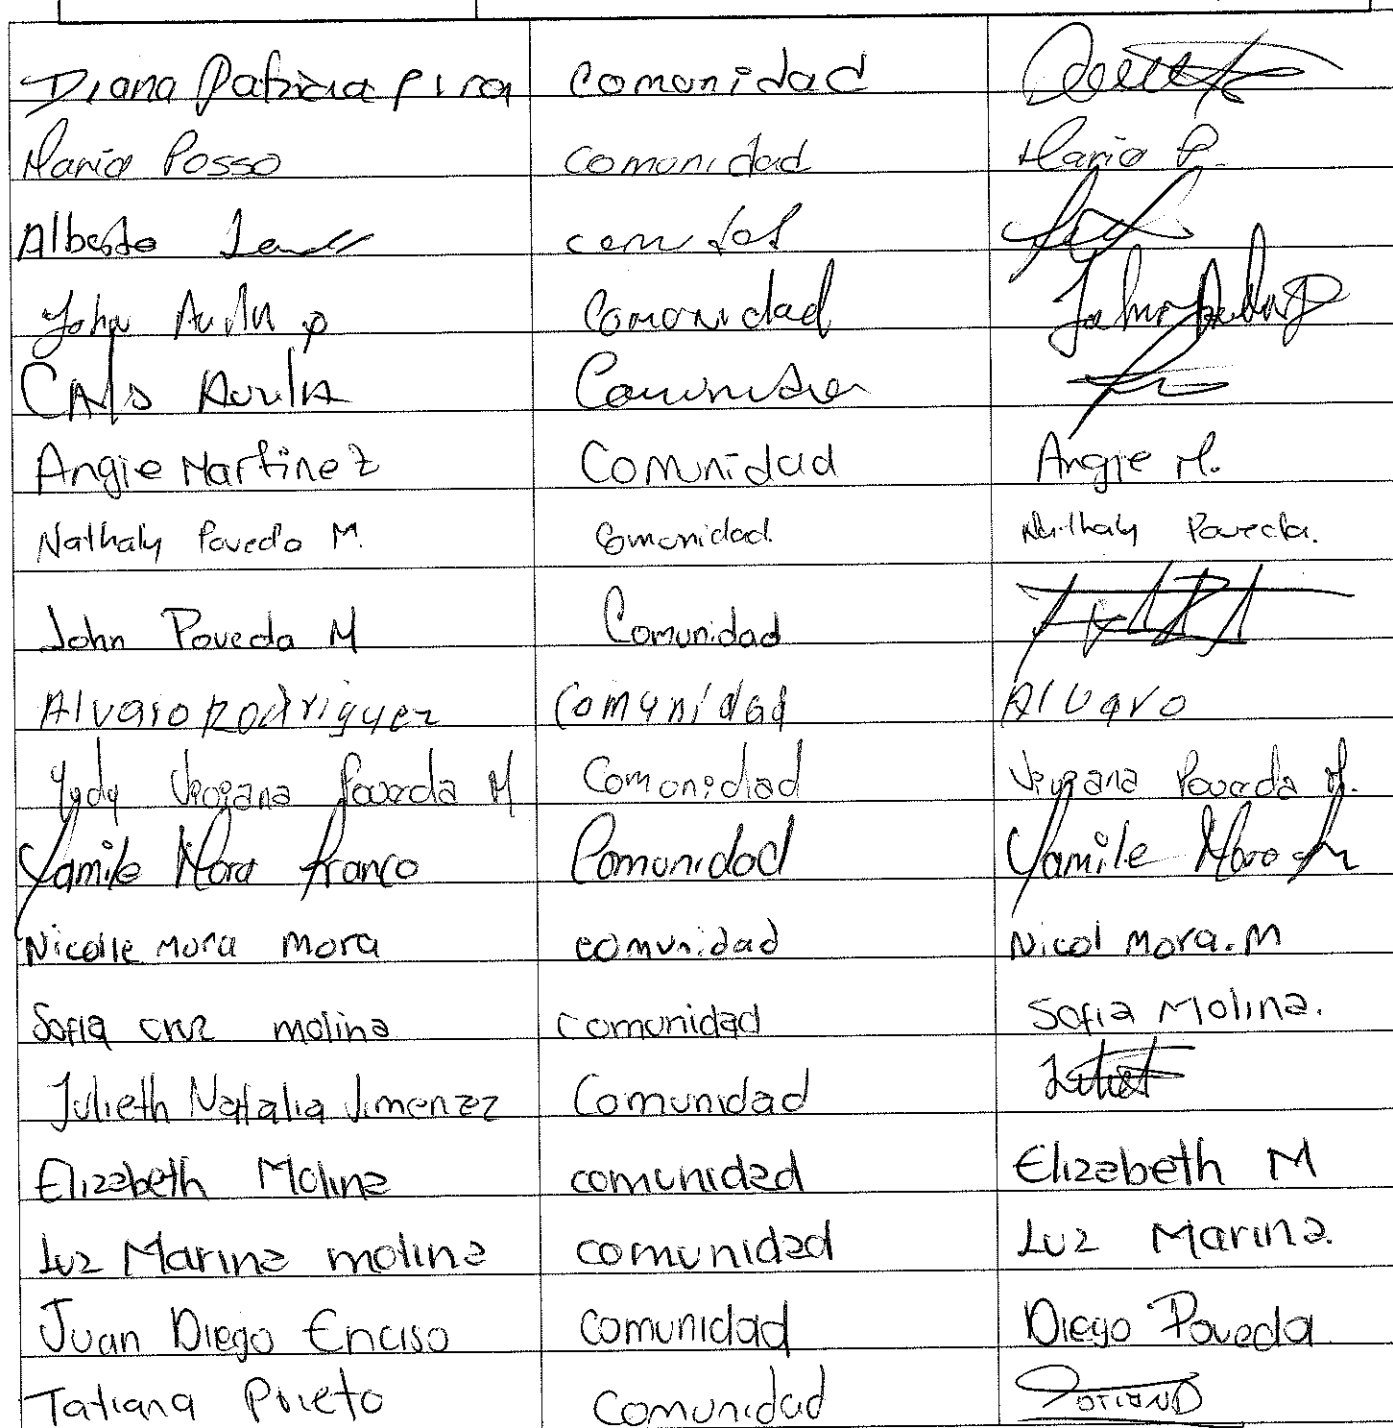 Diana Patricia Pira comunidad
Maria Posso comunidad Maria P.
Alberto
John Avila P Comonidad John Avila P
Avila
Angie Martinez Comunidad Angie M.
Nathaly Poveda M. Comunidad. Nathaly Poveda.
John Poveda M Comunidad
Alvaro Rodriguez Comunidad Alvaro
Yudy Poveda M Comonidad Poveda M.
Yamile Mora Franco Comunidad Yamile Mora
Nicolle Mora Mora comunidad Nicol Mora. M
Sofia Cruz molina comunidad Sofia Molina.
Julieth Natalia Jimenez Comunidad
Elizabeth Molina comunidad Elizabeth M
Luz Marina molina comunidad Luz Marina.
Juan Diego Enciso comunidad Diego Poveda
Tatiana Prieto Comunidad